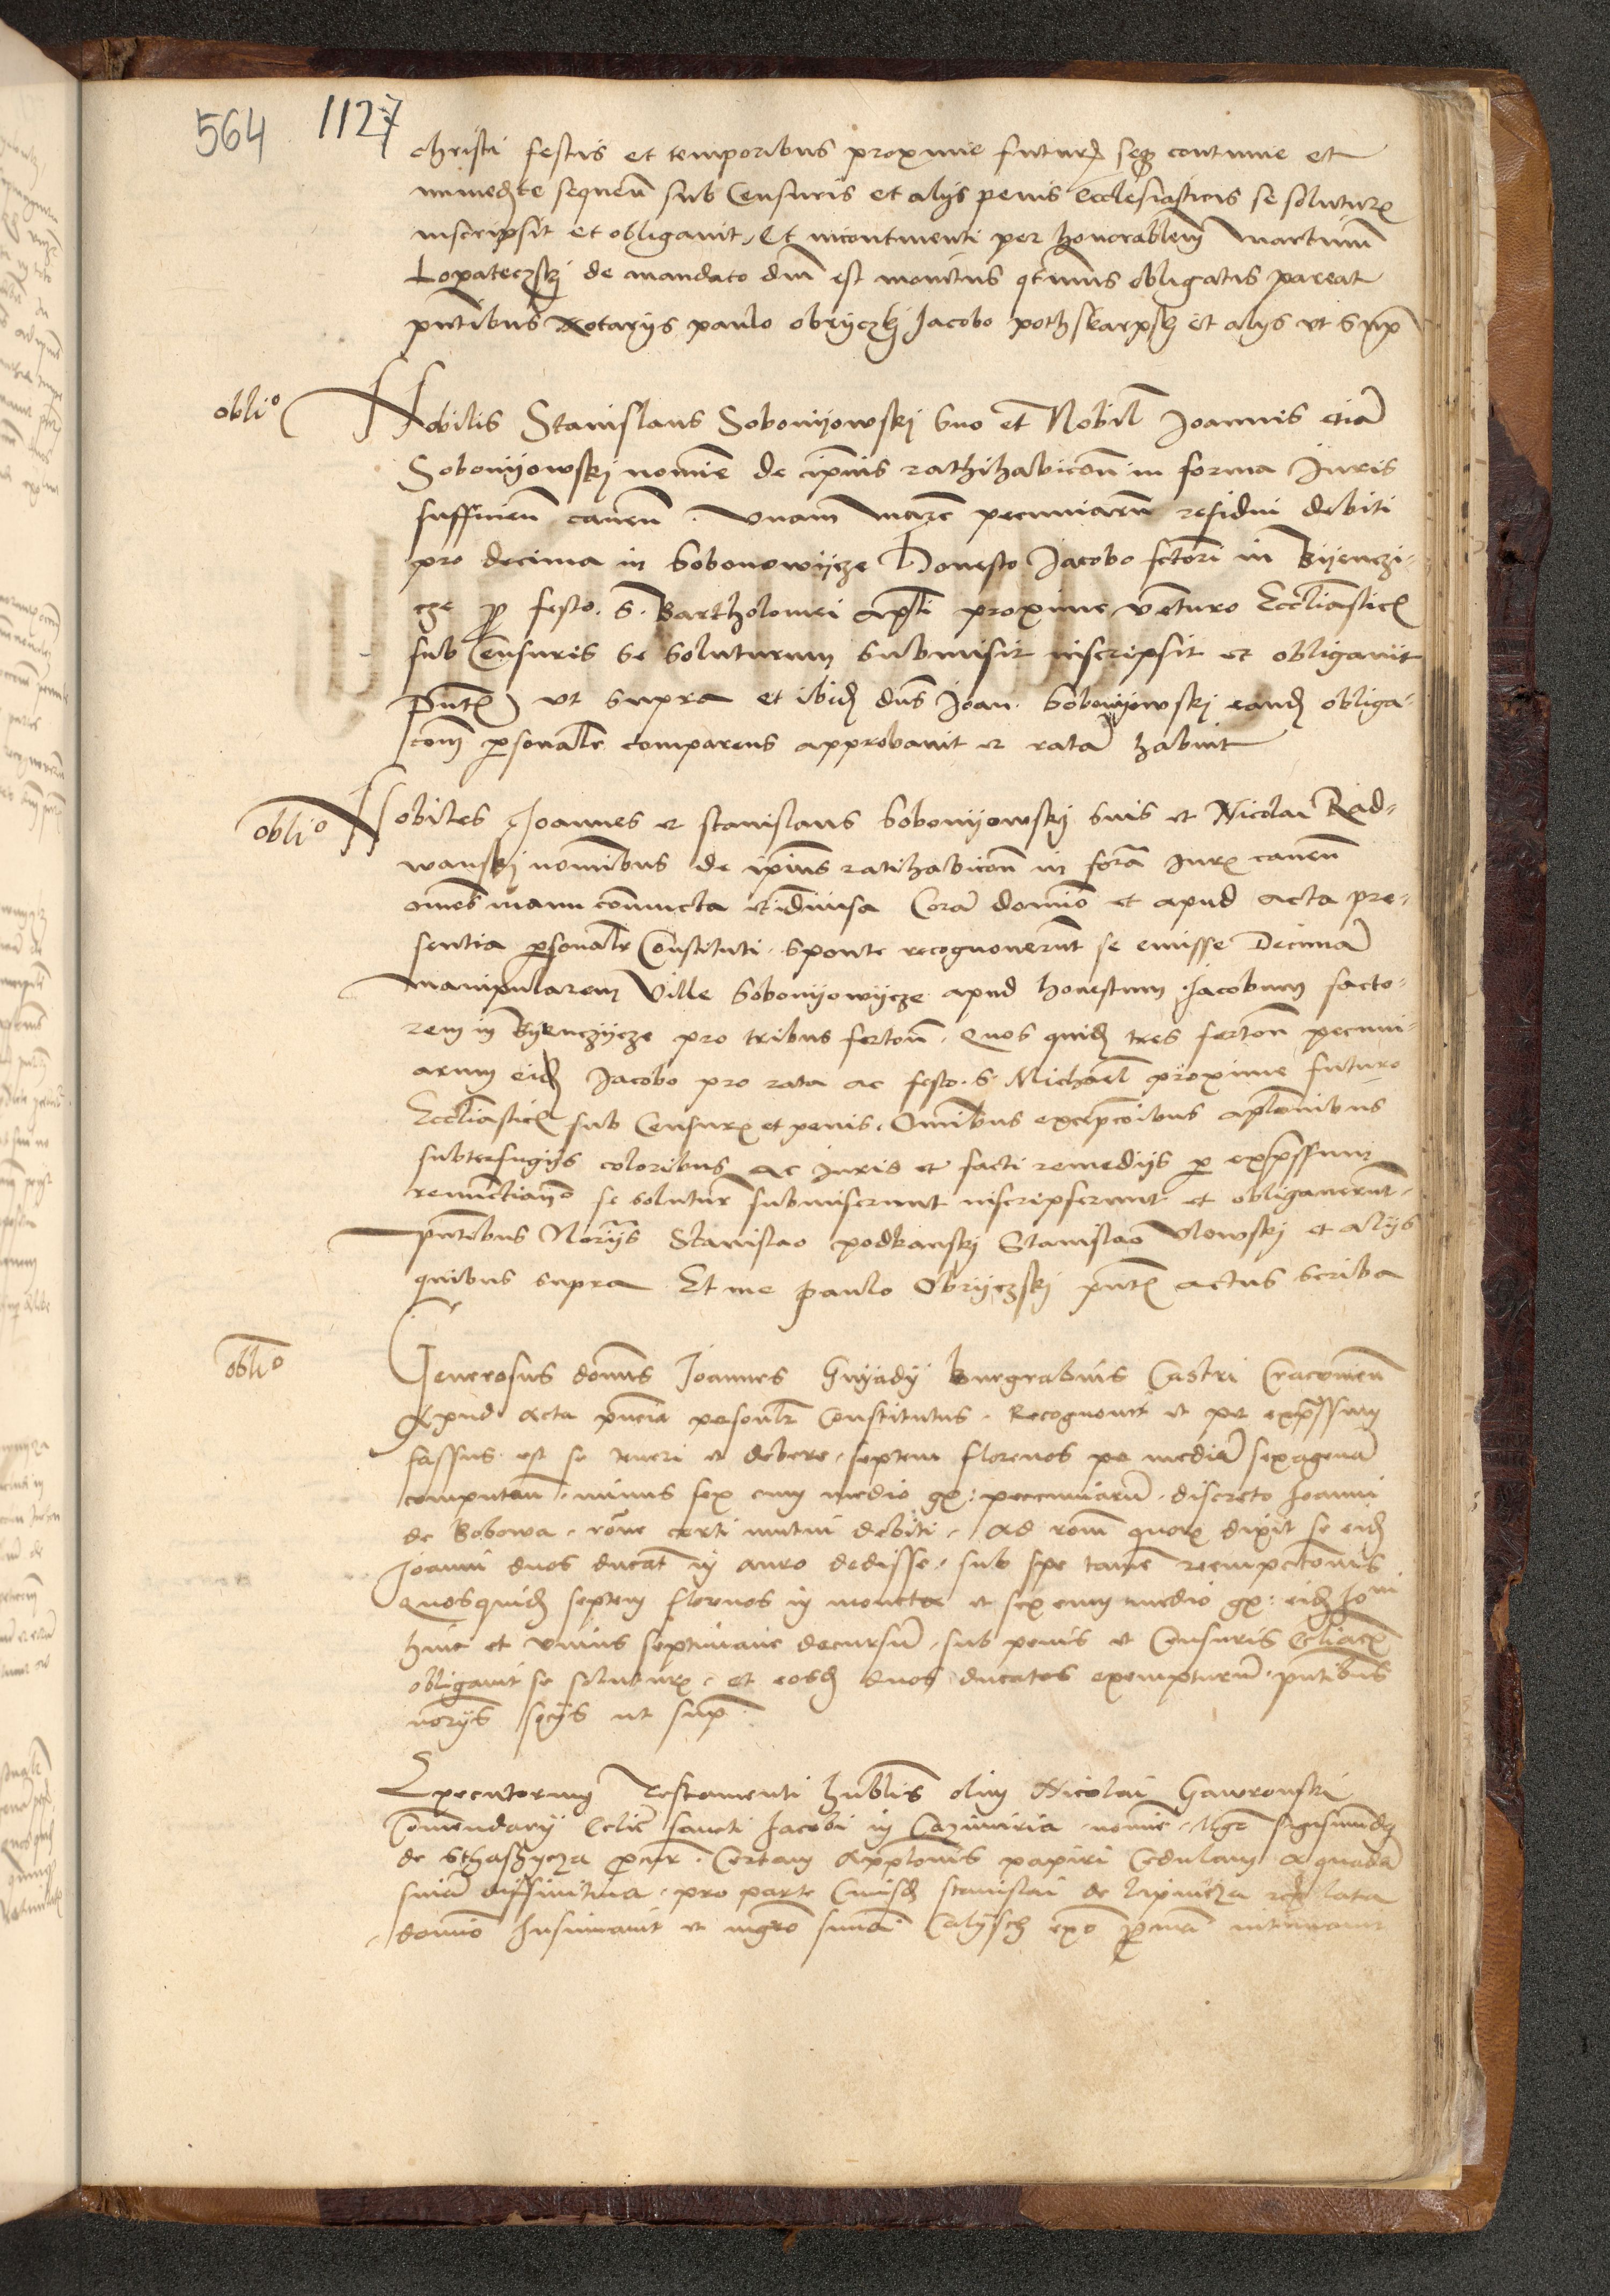 564 1127
christi festis et temporibus proxime futur seq continue et
immediate sequen sub Censuris et alijs penis Ecclesiasticis se solutur
inscripsit et obligavit, Et incontinenti per honorablem Martinum
Lopateczskj de mandato dni est monitus qtnus obligatis pareat
pntibus Notarijs paulo obryczkj Jacobo pothskarpskj et alijs ut sup
oblio
Nobilis Stanislaus Sobonijowskj suo et Nobil Joannis etia
Sobonijowskj nomine de ipsius rathihabicon in forma Juris
sufficien caven. Vnam marc pecuniarum residui debiti
pro decima in Sobonowijcze Honesto Jacobo fctori in Bijenczi-
cze p festo. S. Bartholomei apli proxime venturo Eccliastic
sub Censuris se soluturum submisit inscripsit et obligavit
Pntib ut supra et ibid dns Joan. Sobonijowskj eand obliga-
com psonalr comparens approbavit et rata habuit
oblio
Nobiles Joannes et stanislaus Sobonijowskj suis et Nicolai Rad-
wanskj nominibus de ipsius ratihabicon in fora Jur caven
omnes manu coniuncta et indivisa Cora domino et apud acta pre-
sentia psonalr Constituti. sponte recognoverunt se emisse Decima
manipularem Ville Sobonijowijcze apud honestum Jacobum facto-
rem in Bijenczijcze pro tribus ferton. Quos quid tres ferton pecuni-
arum eid Jacobo pro rata ac festo. S. Michael proxime futuro
Eccliastic sub Censur et penis. Omnibus excepcoibus aplonibus
subterfugijs coloribus ac Juris et facti remedijs p expssum
renunctiano se solutur submiserunt inscripserunt et obligaverunt.
pntibus Norijs Stanislao podkanskj Stanislao Vlowskj et alijs
quibus supra Et me paulo Obrijczskj pnt actus scriba
oblio
Generosus domnus Joannes Gnyady Burgrabius Castri Cracovien
Apud acta pncia personlr Constitutus. Recognovit et per expssum
fassus est se teneri et debere. septem florenos per media sexagena
computan. minus sex cum medio gr: pecuniarum. discreto Joanni
de Bobowa. rone certi mutui debiti. Ad rom quor dixit se eid
Joanni duos ducat in auro dedisse. sub spe tame reempcionis
Quosquid septem florenos in moneta et sex cum medio gr: eid Joni
hinc et unius septimane decursu. sub penis et Censuris Ecliac
obligavit se solutur. et eosd duos ducatos exempturu. pntibus
norijs scijs ut sup
Executorum Testamenti hublis olim Nicolai Gawronski
Comendarij Eclie sancti Jacobi in Cazimiria. nomine. Mgr Sigismund
de Sthaszycza pcur. Certam Applonis papiri Cedulam a quada
snia diffinitiva. pro parte Cuiusd stanislai de lata
domino Insinuavit et